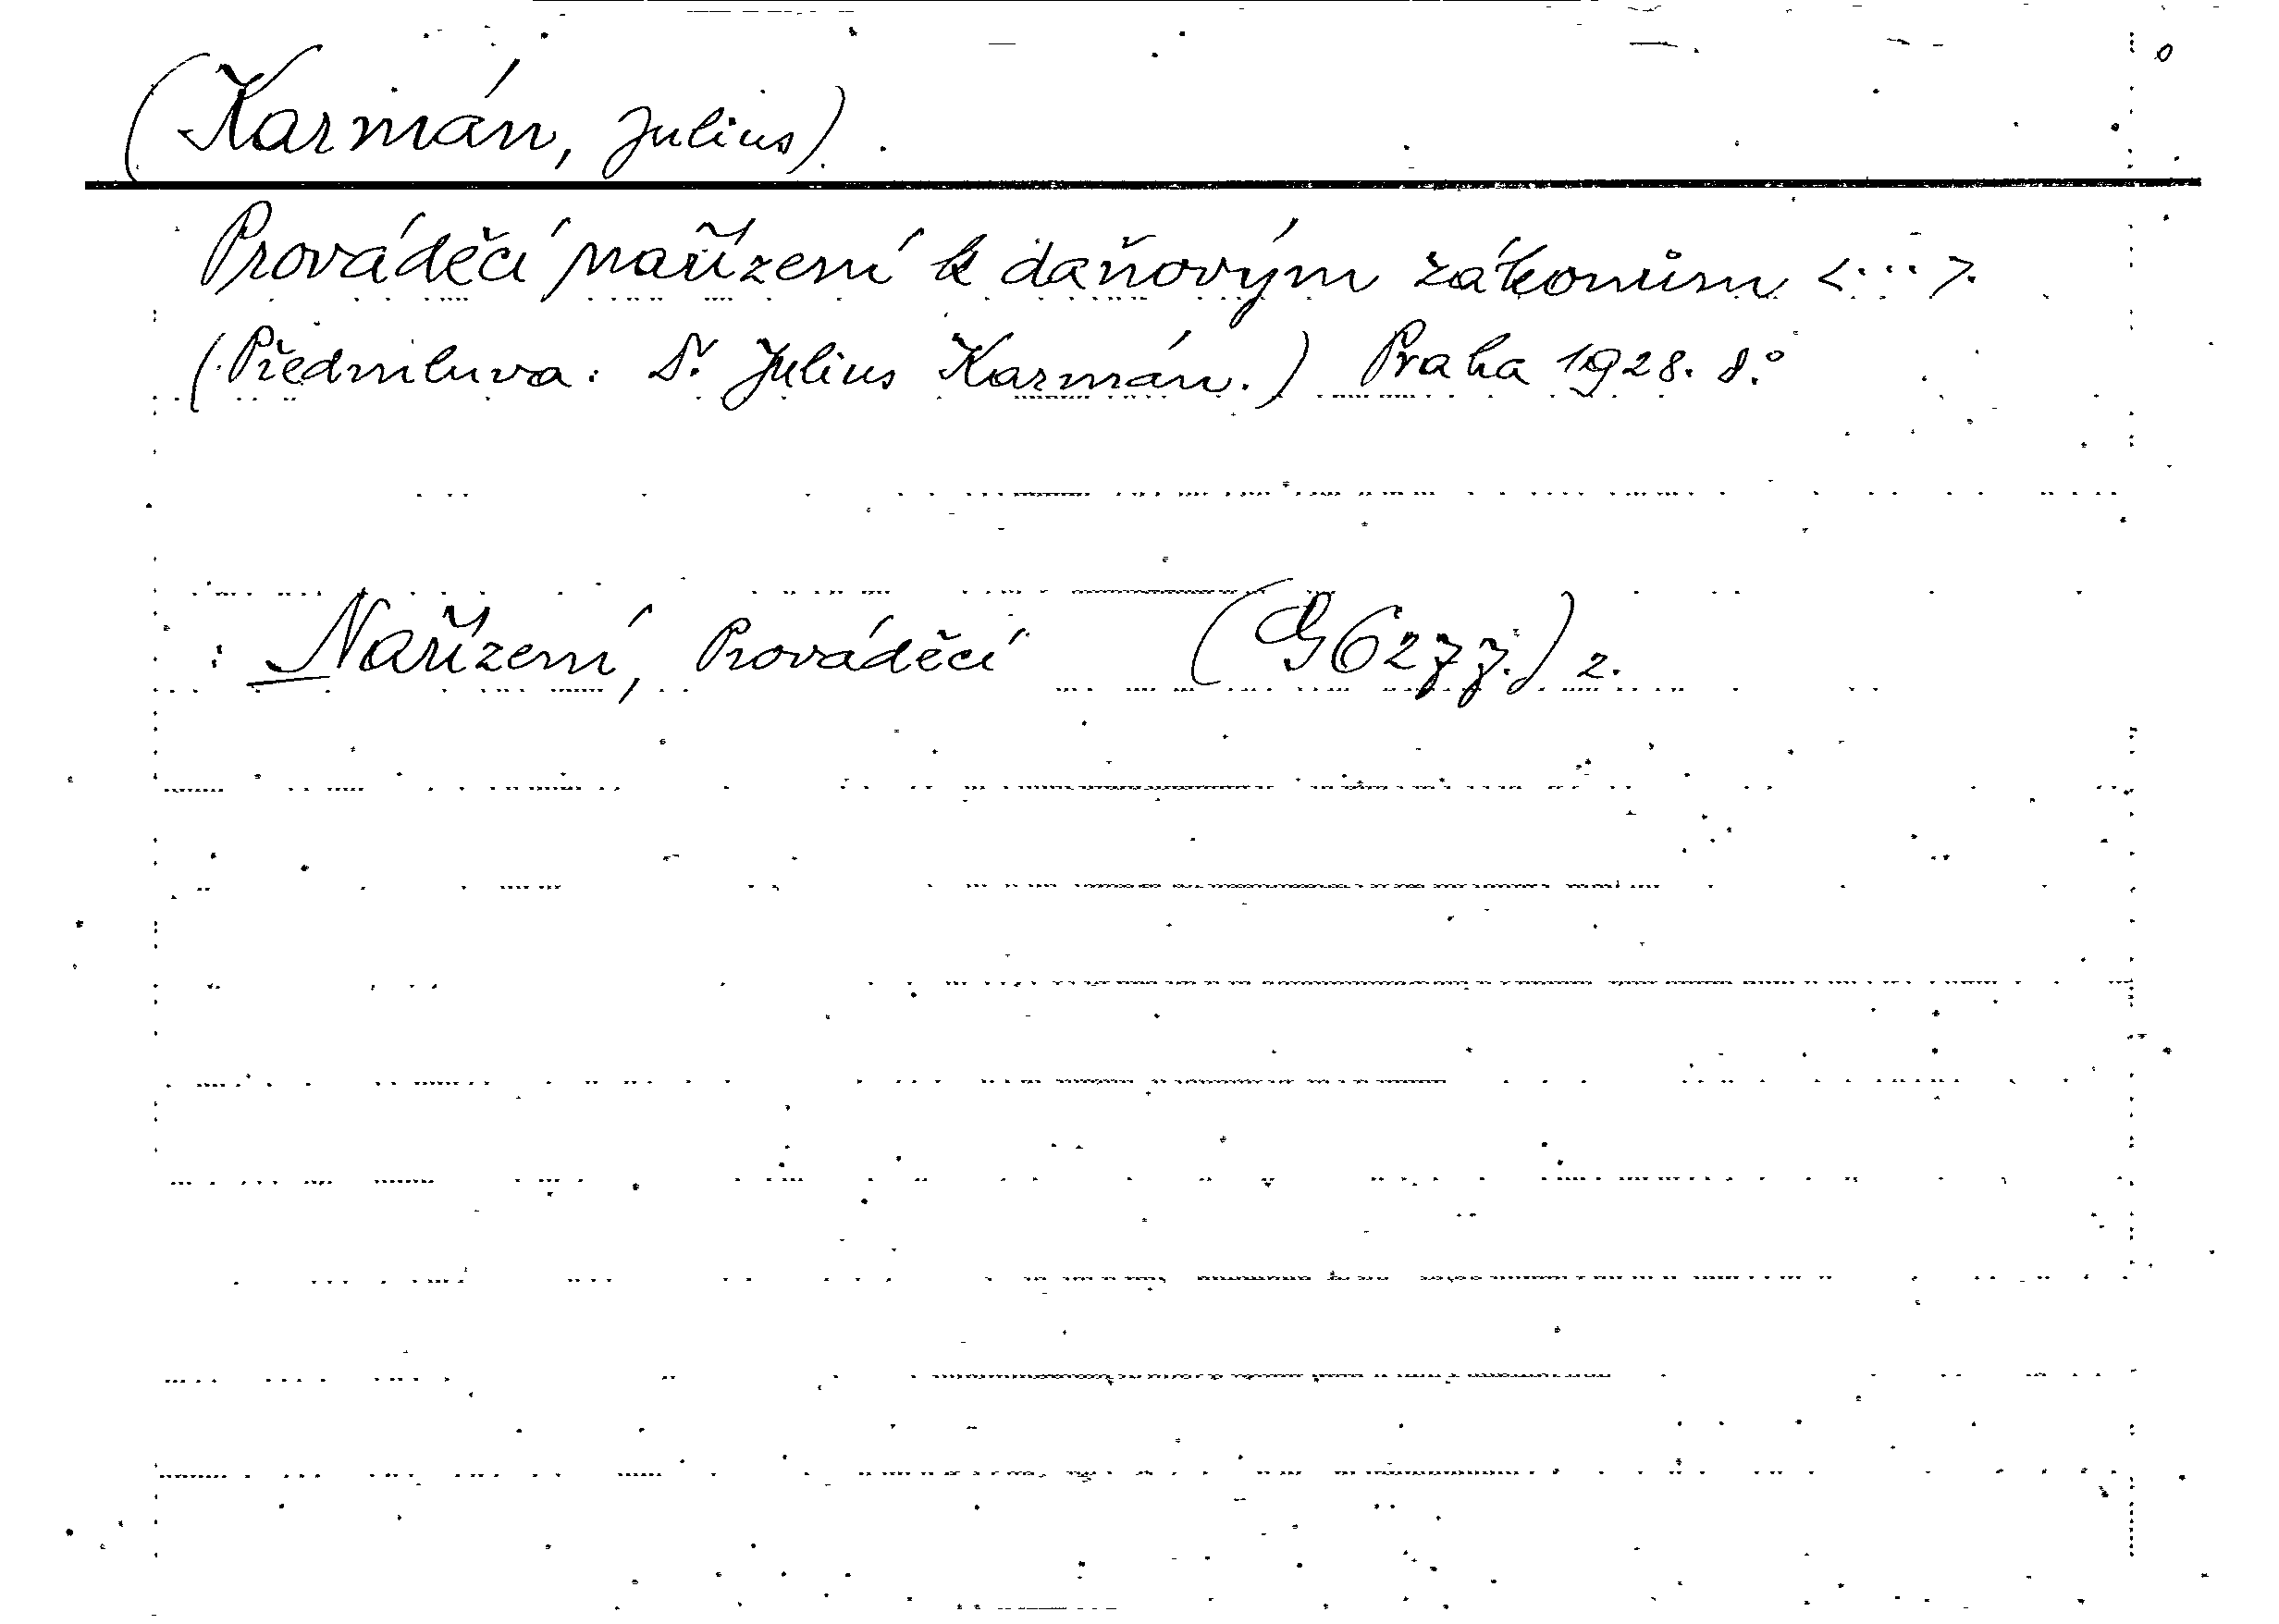 (Karmán, Julius).
Prováděcí nařízení k daňovým zákonům <...>.
(Předmluva: Dr. Julius Karmán.) Praha 1928. 8.°
: Nařízení, Prováděcí (G 6277.) 2.